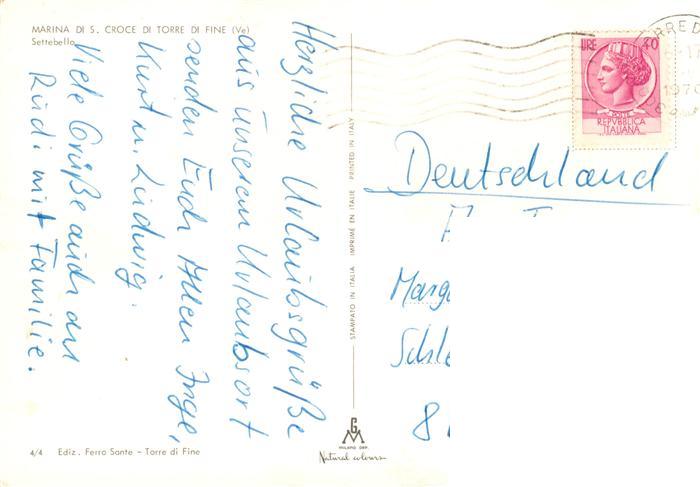 MARINA DI S. CROCE DI TORRE DI FINE (Ve)
Settebello
Herzliche Urlaubsgrüße
aus unserem Urlaubsort
senden Euch Allen Inge,
Kurt u. Ludwig.
Viele Grüße auch an
Rudi mit Familie.
4/4 Ediz. Ferro Sante - Torre di Fine
STAMPATO IN ITALIA IMPRIMÉ EN ITALIE PRINTED IN ITALY
GM
MILANO DEP.
Natural colours
LIRE 40
POSTE
REPVBBLICA
ITALIANA
1970
Deutschland
8